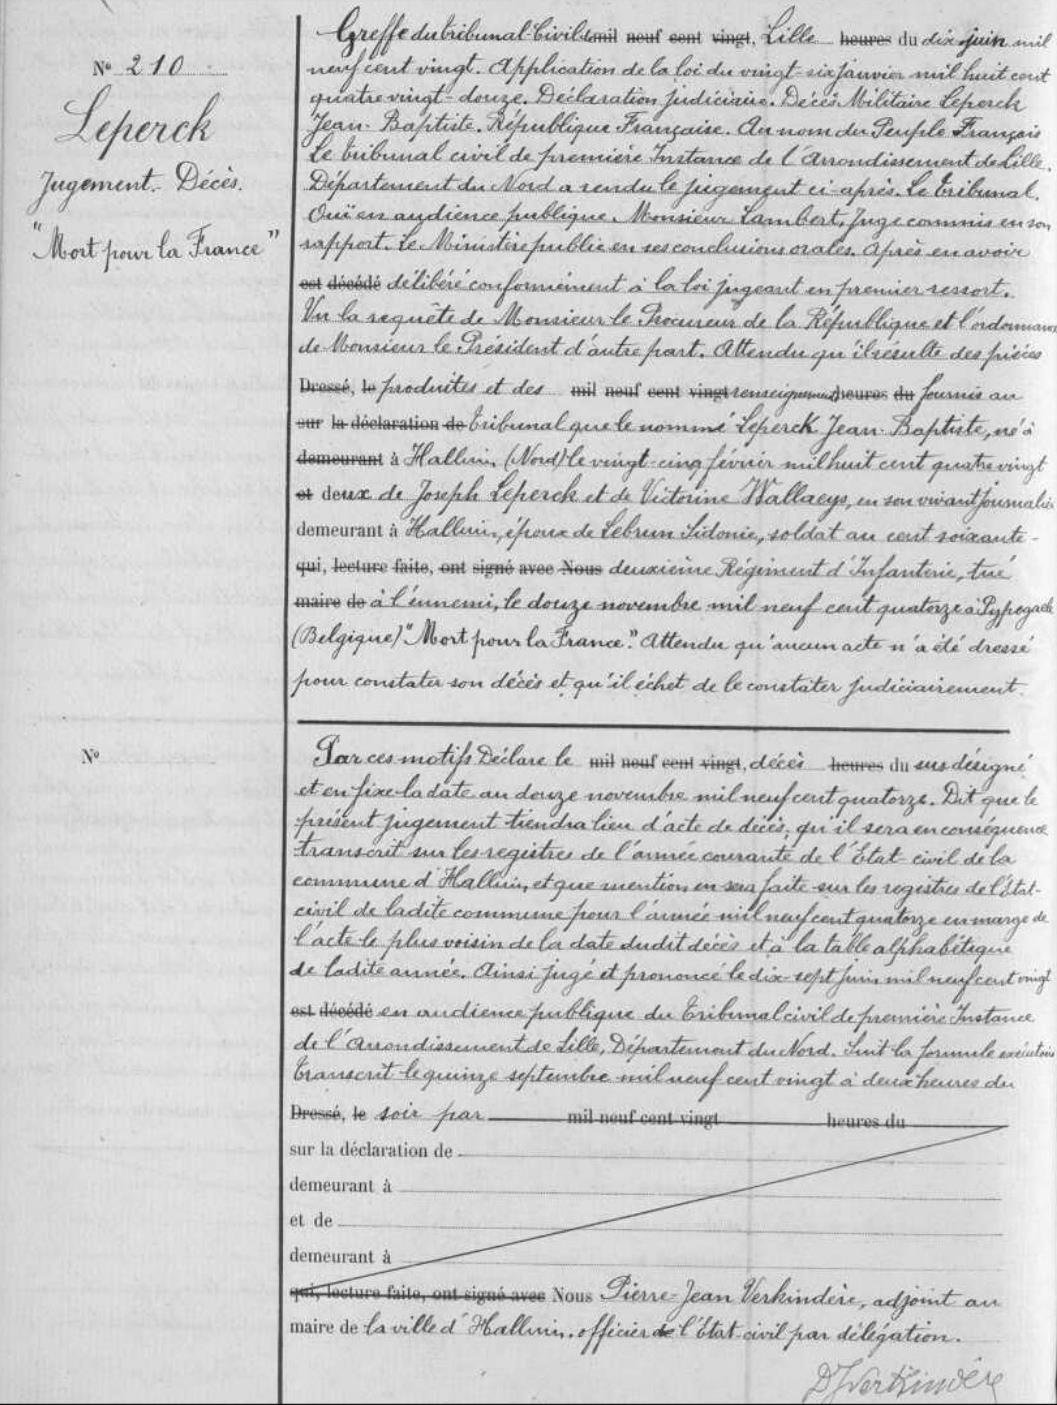 N° 210
Leperck
Jugement. Décès.
"Mort pour la France"
Greffe du tribunal Civil de mil neuf cent vingt, Lille heures du dix juin mil
neuf cent vingt. Application de la loi du vingt-six janvier mil huit cent
quatre vingt-douze. Déclaration judiciaire. Décès Militaire Leperck
Jean-Baptiste. République Française. Au nom du Peuple Français
Le tribunal civil de première Instance de l'Arrondissement de Lille.
Département du Nord a rendu le jugement ci-après. Le tribunal.
Ouï en audience publique. Monsieur Lambert, Juge commis en son
rapport. Le Ministère public en ses conclusions orales. Après en avoir
est décédé délibéré conformément à la loi jugeant en premier ressort.
Vu la requête de Monsieur le Procureur de la République et l'ordonnance
de Monsieur le Président d'autre part. Attendu qu'il résulte des pièces
Dressé, le produites et des mil neuf cent vingt renseignements heures du fournis au
sur la déclaration de tribunal que le nommé Leperck Jean-Baptiste, né à
demeurant à Halluin, (Nord) le vingt-cinq février mil huit cent quatre vingt
et deux de Joseph Leperck et de Victorine Wallaeys, en son vivant journalier
demeurant à Halluin, époux de Lebrun Sidonie, soldat au cent soixante-
qui, lecture faite, ont signé avec Nous deuxième Régiment d'Infanterie, tué
maire de à l'ennemi, le douze novembre mil neuf cent quatorze à Pypegaele
(Belgique) "Mort pour la France". Attendu qu'aucun acte n'a été dressé
pour constater son décès et qu'il échet de le constater judiciairement.
N°
Par ces motifs Déclare le mil neuf cent vingt, décès heures du sus désigné
et en fixe la date au douze novembre mil neuf cent quatorze. Dit que le
présent jugement tiendra lieu d'acte de décès, qu'il sera en conséquence
transcrit sur les registres de l'année courante de l'Etat-civil de la
commune d'Halluin, et que mention en sera faite sur les registres de l'Etat-
civil de ladite commune pour l'année mil neuf cent quatorze en marge de
l'acte le plus voisin de la date dudit décès et à la table alphabétique
de ladite année. Ainsi jugé et prononcé le dix-sept juin mil neuf cent vingt
est décédé en audience publique du Tribunal civil de première Instance
de l'Arrondissement de Lille, Département du Nord. Suit la formule exécutoire
Transcrit le quinze septembre mil neuf cent vingt à deux heures du
Dressé, le soir par mil neuf cent vingt heures du
sur la déclaration de
demeurant à
et de
demeurant à
qui, lecture faite, ont signé avec Nous Pierre-Jean Verkindère, adjoint au
maire de la ville d'Halluin, officier de l'Etat-civil par délégation.
PJVerkindère